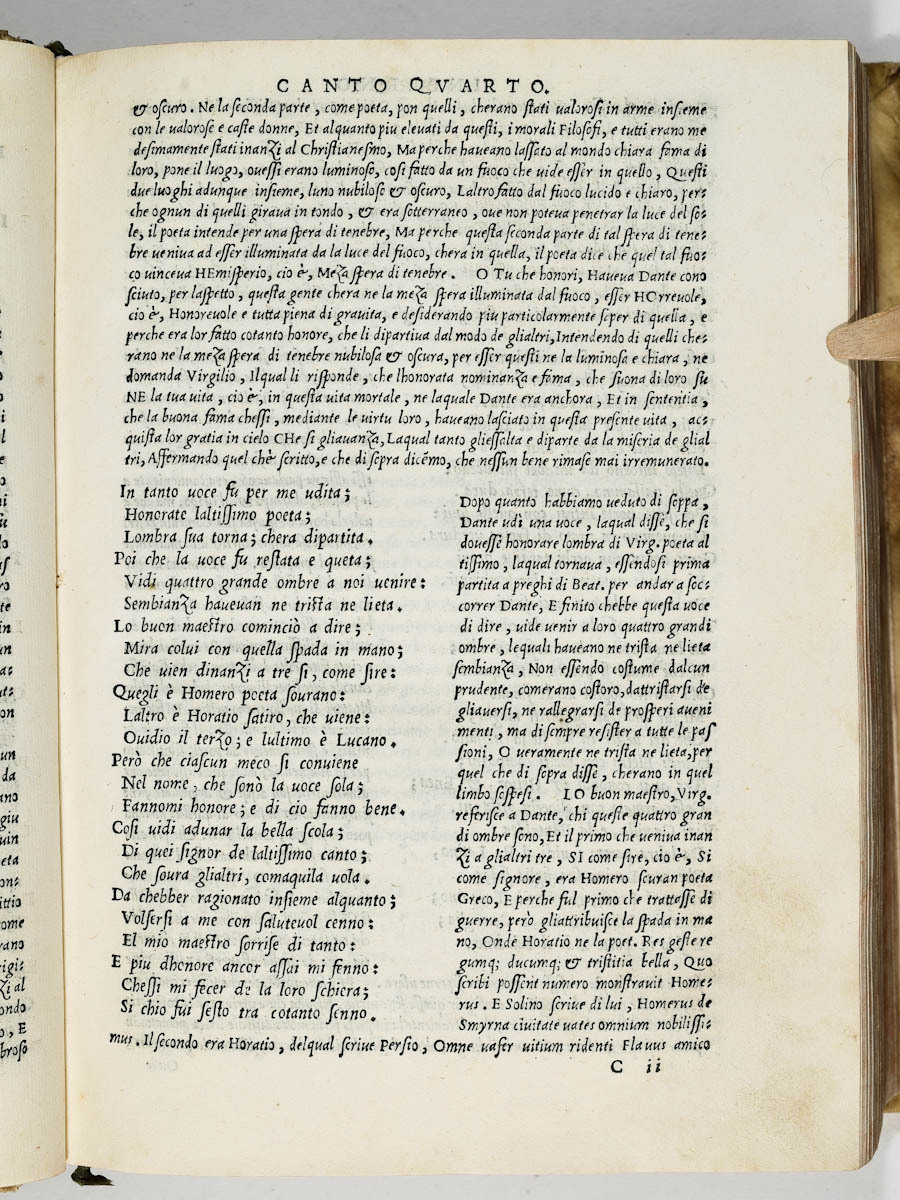 CANTO QVARTO.
& oscuro. Ne la seconda parte, come poeta, pon quelli, cherano stati valorosi in arme insieme
con le valorose e caste donne, Et alquanto piu eleuati da questi, i morali Filosofi, e tutti erano me
desimamente stati inanzi al Christianesmo, Ma perche haueano lassato al mondo chiara fama di
loro, pone il luogo, ouessi erano luminoso, cosi fatto da un fuoco che uide esser in quello, Questi
due luoghi adunque insieme, luno nubiloso & oscuro, Laltro fatto dal fuoco lucido e chiaro, per:
che ognun di quelli giraua in tondo, & era sotterraneo, oue non poteua penetrar la luce del so:
le, il poeta intende per una spera di tenebre, Ma perche questa seconda parte di tal spera di tene:
bre ueniua ad esser illuminata da la luce del fuoco, chera in quella, il poeta dice che quel tal fuo:
co uinceua HEmisperio, cio è, Meza spera di tenebre. O Tu che honori, Haueua Dante cono
sciuto, per laspetto, questa gente chera ne la meza spera illuminata dal fuoco, esser HOrreuole,
cio è, Honoreuole e tutta piena di grauita, e desiderando piu particolarmente saper di quella, e
perche era lor fatto cotanto honore, che li dipartiua dal modo de glialtri, Intendendo di quelli che:
rano ne la meza spera di tenebre nubilosa & oscura, per esser questi ne la luminosa e chiara, ne
domanda Virgilio, Ilqual li risponde, che lhonorata nominanza e fama, che suona di loro su
NE la tua vita, cio è, in questa vita mortale, ne laquale Dante era anchora, Et in sententia,
che la buona fama chessi, mediante le uirtu loro, haueano lasciato in questa presente vita, ac:
quista lor gratia in cielo CHe si gliauanza, Laqual tanto gliessalta e diparte da la miseria de glial
tri, Affermando quel chè scritto, e che di sopra dicemo, che nessun bene rimase mai irremunerato.
In tanto uoce fu per me udita;
Honorate laltissimo poeta;
Lombra sua torna; chera dipartita.
Poi che la uoce fu restata e queta;
Vidi quattro grande ombre a noi uenire:
Sembianza haueuan ne trista ne lieta.
Lo buon maestro cominciò a dire;
Mira colui con quella spada in mano;
Che uien dinanzi a tre si, come sire:
Quegli è Homero poeta sourano:
Laltro è Horatio satiro, che uiene:
Ouidio il terzo; e lultimo è Lucano.
Però che ciascun meco si conuiene
Nel nome, che sonò la uoce sola;
Fannomi honore; e di cio fanno bene.
Cosi uidi adunar la bella scola;
Di quei signor de laltissimo canto;
Che soura glialtri, comaquila uola.
Da chebber ragionato insieme alquanto;
Volsersi a me con saluteuol cenno:
El mio maestro sorrise di tanto:
E piu dhonore ancor assai mi fenno:
Chessi mi fecer de la loro schiera;
Si chio fui sesto tra cotanto senno.
Dopo quanto habbiamo ueduto di soppa,
Dante udì una uoce, laqual disse, che si
douesse honorare lombra di Virg. poeta al
tissimo, laqual tornaua, essendosi prima
partita a preghi di Beat. per andar a soc:
correr Dante, E finito chebbe questa uoce
di dire, uide uenir a loro quattro grandi
ombre, lequali haueano ne trista ne lieta
sembianza, Non essendo costume dalcun
prudente, comerano costoro, dattristarsi de
gliauersi, ne rallegrarsi de prosperi aueni
menti, ma di sempre resister a tutte le pas
sioni, O ueramente ne trista ne lieta, per
quel che di sopra disse, cherano in quel
limbo sospesi. LO buon maestro, Virg.
referisce a Dante, chi queste quattro gran
di ombre sono, Et il primo che ueniua inan
zi a glialtri tre, SI come sire, cio è, Si
come signore, era Homero souran poeta
Greco, E perche ful primo che trattasse di
guerre, però gliattribuisce la spada in ma
no, Onde Horatio ne la poet. Res gestę re
gumq; ducumq; & tristitia bella, Quo
scribi possent numero monstrauit Home:
rus. E Solino scriue di lui, Homerus de
Smyrna ciuitate uates omnium nobilissi:
mus. Il secondo era Horatio, delqual scriue Persio, Omne uafer uitium ridenti Flauus amico
C ii